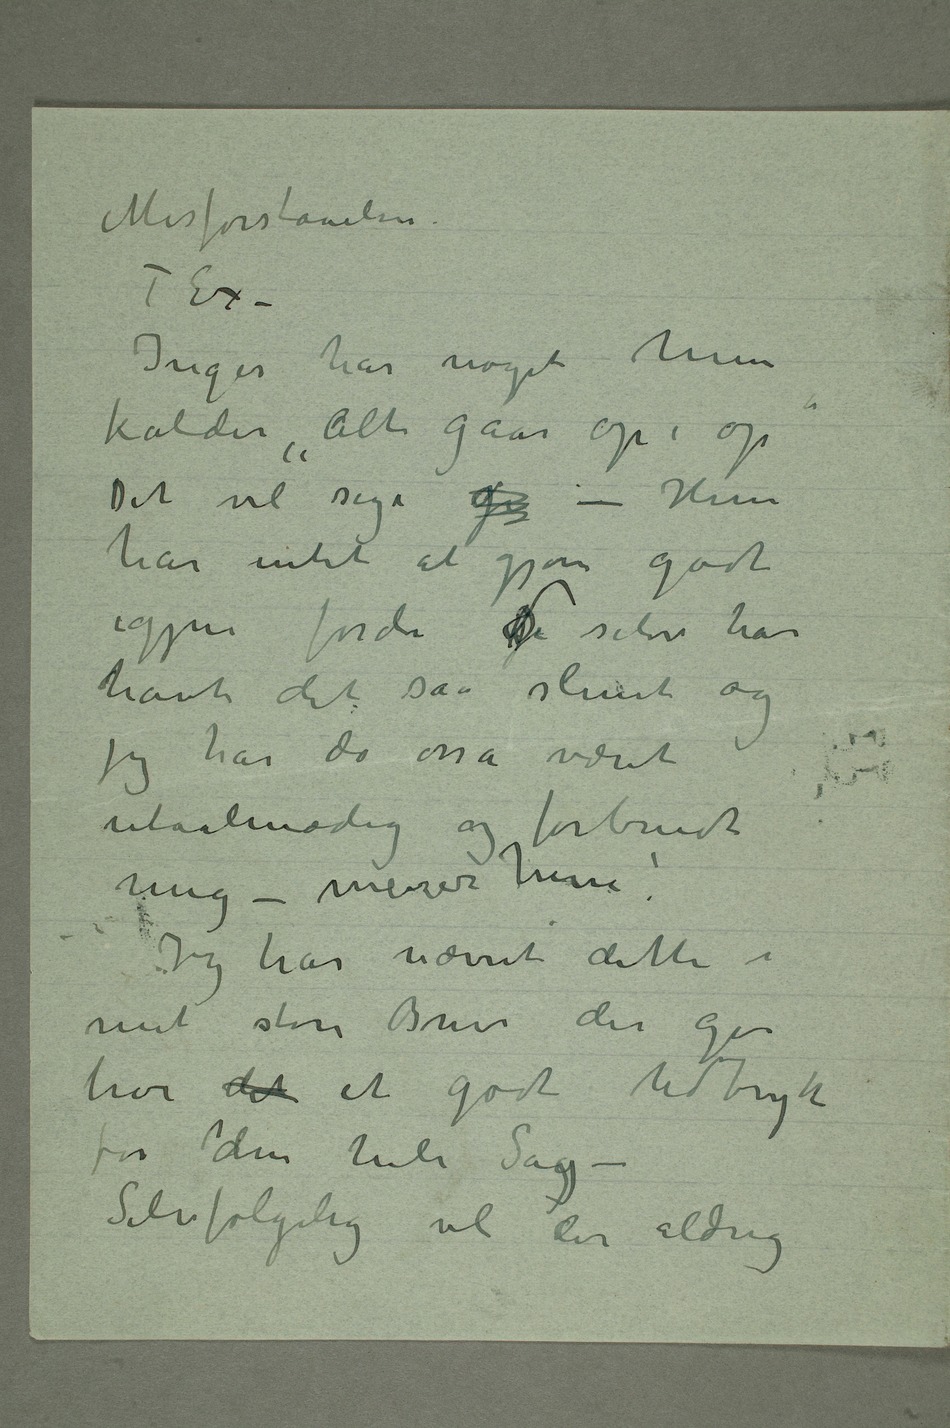 Misforstaaelsen.
T Ex –
Inger har noget hun
kalder „Alt gaar op i op“
Det vil sige – Hun
har intet at gjøre godt
igjen fordi selv har
havt det saa slemt og
jeg har da ossa været
utaalmodig og forbandt
mig – mener hun!
Jeg har nævnt dette i
mit store Brev der gir
hvor det et godt Udtryk
for den hele Sag –
Selvfølgelig vil der aldrig